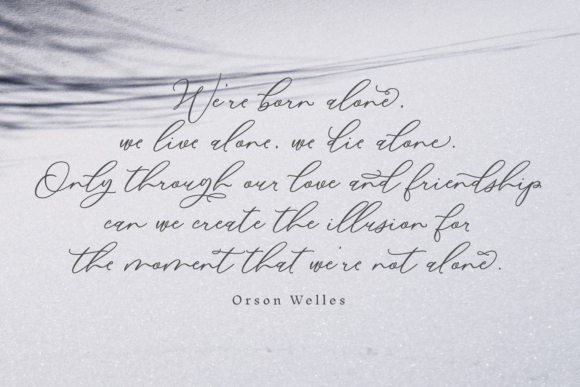 We're born alone.
we live alone. we die alone.
Only through our love and friendship
can we create the illusion for
the moment that we're not alone.
Orson Welles